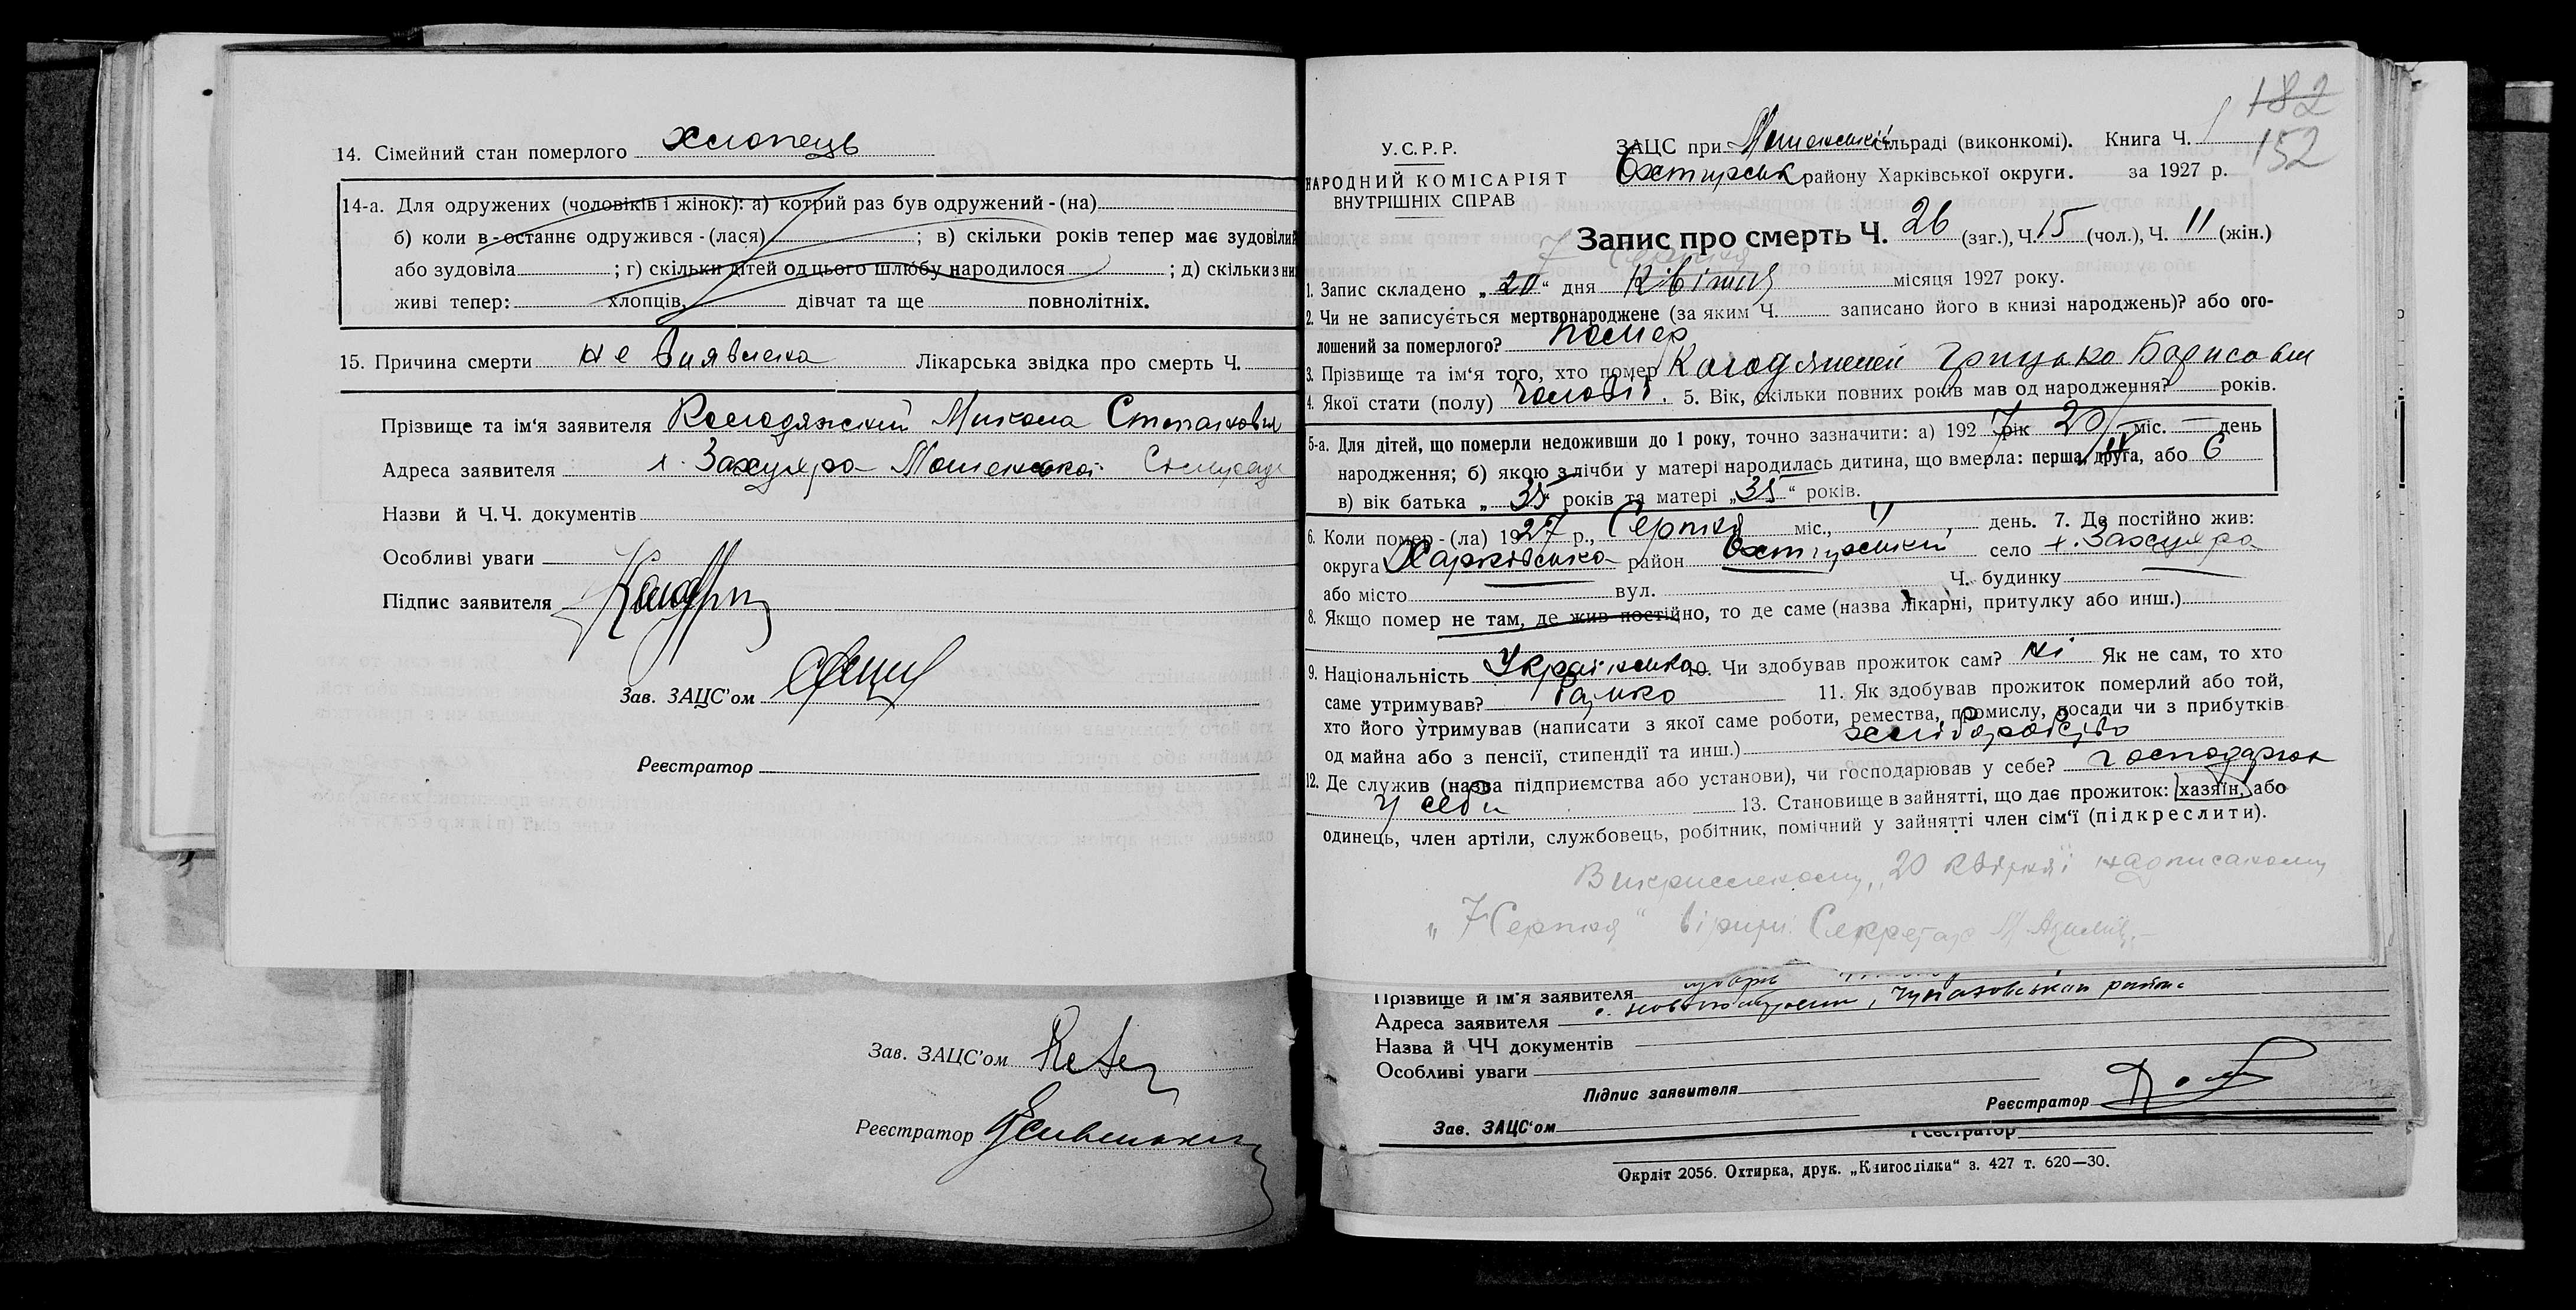 14. Сімейний стан померлого хлопець
14-а. Для одружених (чоловіків і жінок): а) котрий раз був одружений - (на)
б) коли в-останнє одружився - (лася) ; в) скільки років тепер має зудовілий
або зудовіла ; г) скільки дітей од цього шлюбу народилося ; д) скільки з них
живі тепер: хлопців, дівчат та ще повнолітніх.
15. Причина смерти не виявлена Лікарська звідка про смерть Ч.
Прізвище та ім'я заявителя Колодяжний Микола Степанович
Адреса заявителя х. Захуяра Мошенської Сільради
Назви й Ч.Ч. документів
Особливі уваги
Підпис заявителя
Зав. ЗАЦС'ом
Реєстратор
Зав. ЗАЦС'ом
Реєстратор
182
152
У.С.Р.Р.
НАРОДНИЙ КОМІСАРІЯТ
ВНУТРІШНІХ СПРАВ
ЗАЦС при Мошенській сільраді (виконкомі). Книга Ч.
Охтирськ району Харківської округи. за 1927 р.
Запис про смерть Ч. 26 (заг.), Ч. 15 (чол.), Ч. 11 (жін.)
7 Серпня
1. Запис складено „20“ дня Квітня місяця 1927 року.
2. Чи не записується мертвонароджене (за яким Ч. записано його в книзі народжень)? або ого-
лошений за померлого? помер
3. Прізвище та ім'я того, хто помер Колодяжний Грицько Борисович
4. Якої стати (полу) чоловіч. 5. Вік, скільки повних років мав од народження? років.
5-а. Для дітей, що померли недоживши до 1 року, точно зазначити: а) 1927 рік 20/ міс. — день
народження; б) якою з лічби у матері народилась дитина, що вмерла: перша, друга, або 6
в) вік батька „35“ років та матері „35“ років.
6. Коли помер - (ла) 1927 р., Серпня міс., день. 7. Де постійно жив:
округа Харківська район Охтирський село х. Захуяра
або місто вул. Ч. будинку
8. Якщо помер не там, де жив постійно, то де саме (назва лікарні, притулку або инш.)
9. Національність Українська 10. Чи здобував прожиток сам? ні Як не сам, то хто
саме утримував? батько 11. Як здобував прожиток померлий або той,
хто його утримував (написати з якої саме роботи, ремества, промислу, посади чи з прибутків
од майна або з пенсії, стипендії та инш.) хліборобство
12. Де служив (назва підприємства або установи), чи господарював у себе? господарює
у себе 13. Становище в зайнятті, що дає прожиток: хазяїн, або
одинець, член артіли, службовець, робітник, помічний у зайнятті член сім'ї (підкреслити).
Викресленому „20 квітня“ надписаному
„7 Серпня“ вірити. Секретар
Прізвище й ім'я заявителя
Адреса заявителя району
Назва й ЧЧ документів
Особливі уваги
Підпис заявителя
Реєстратор
Зав. ЗАЦС'ом
Реєстратор
Окрліт 2056. Охтирка, друк. „Книгоспілка“ з. 427 т. 620—30.